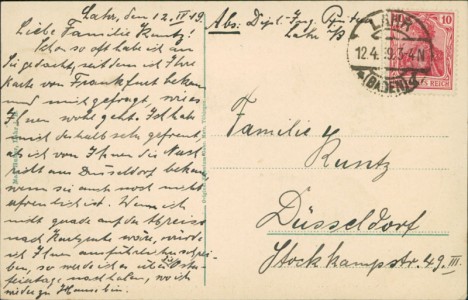 Lahr, den 12.IV.19.
Liebe Familie Kuntz!
Schon so oft habe ich an
Sie gedacht, seitdem ich Ihre
Karte von Frankfurt bekam
und mich gefragt, wie es
Ihnen wohl geht. Ich habe
mich deshalb sehr gefreut,
als ich von Ihnen die Nach
richt aus Düsseldorf bekam,
wenn sie auch noch nicht
erfreulich ist. Wenn ich
nicht gerade auf der Abreise
nach Karlsruhe wäre, würde
ich Ihnen ausführlicher schrei-
ben, so werde ich es
nachholen, wo ich
wieder zu Hause bin.
Abs: Dipl. Ing.
Lahr i/B
LAHR
12.4.19.3-4N
(BADEN)
10
REICH
Familie
Kuntz
Düsseldorf
Stockkampstr. 49 III.